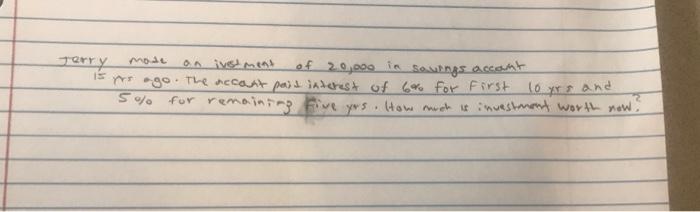 Jerry made an ivestment of 20,000 in savings account
15 yrs ago. The account paid interest of 6% for First 10 yrs and
5% for remaining Five yrs. How much is investment worth now?